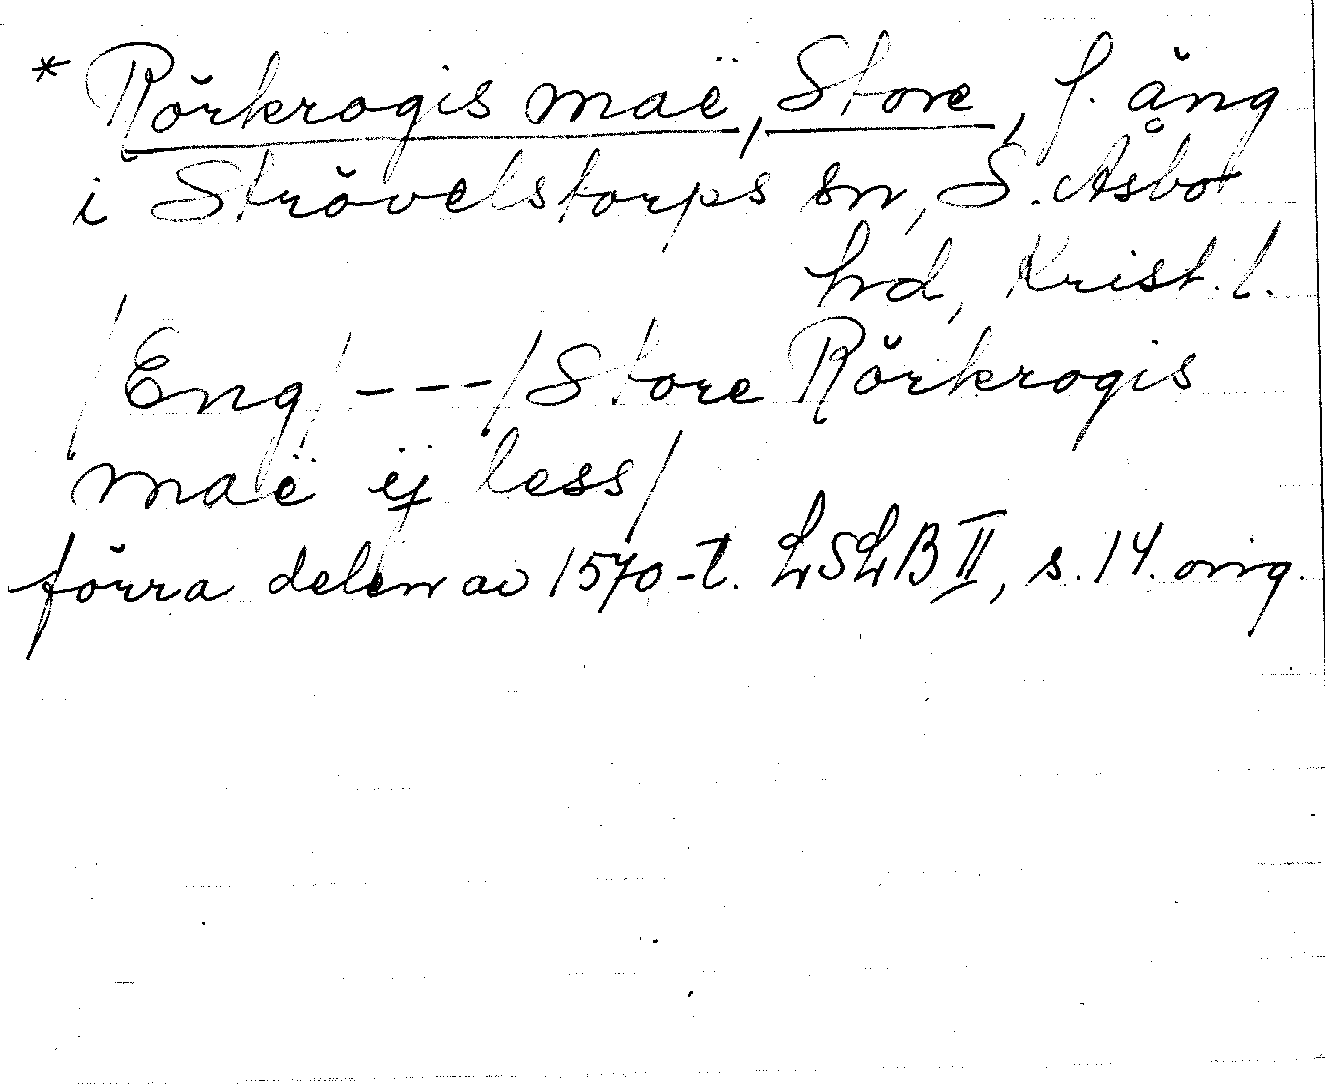 * Rörkrogis maë, Store, f. äng
i Strövelstorps sn, S. Åsbo
hd, Krist. l.
/Eng/ --- /Store Rörkrogis
maë ij less/
förra delen av 1570-t. LSLB II, s. 14. omg.